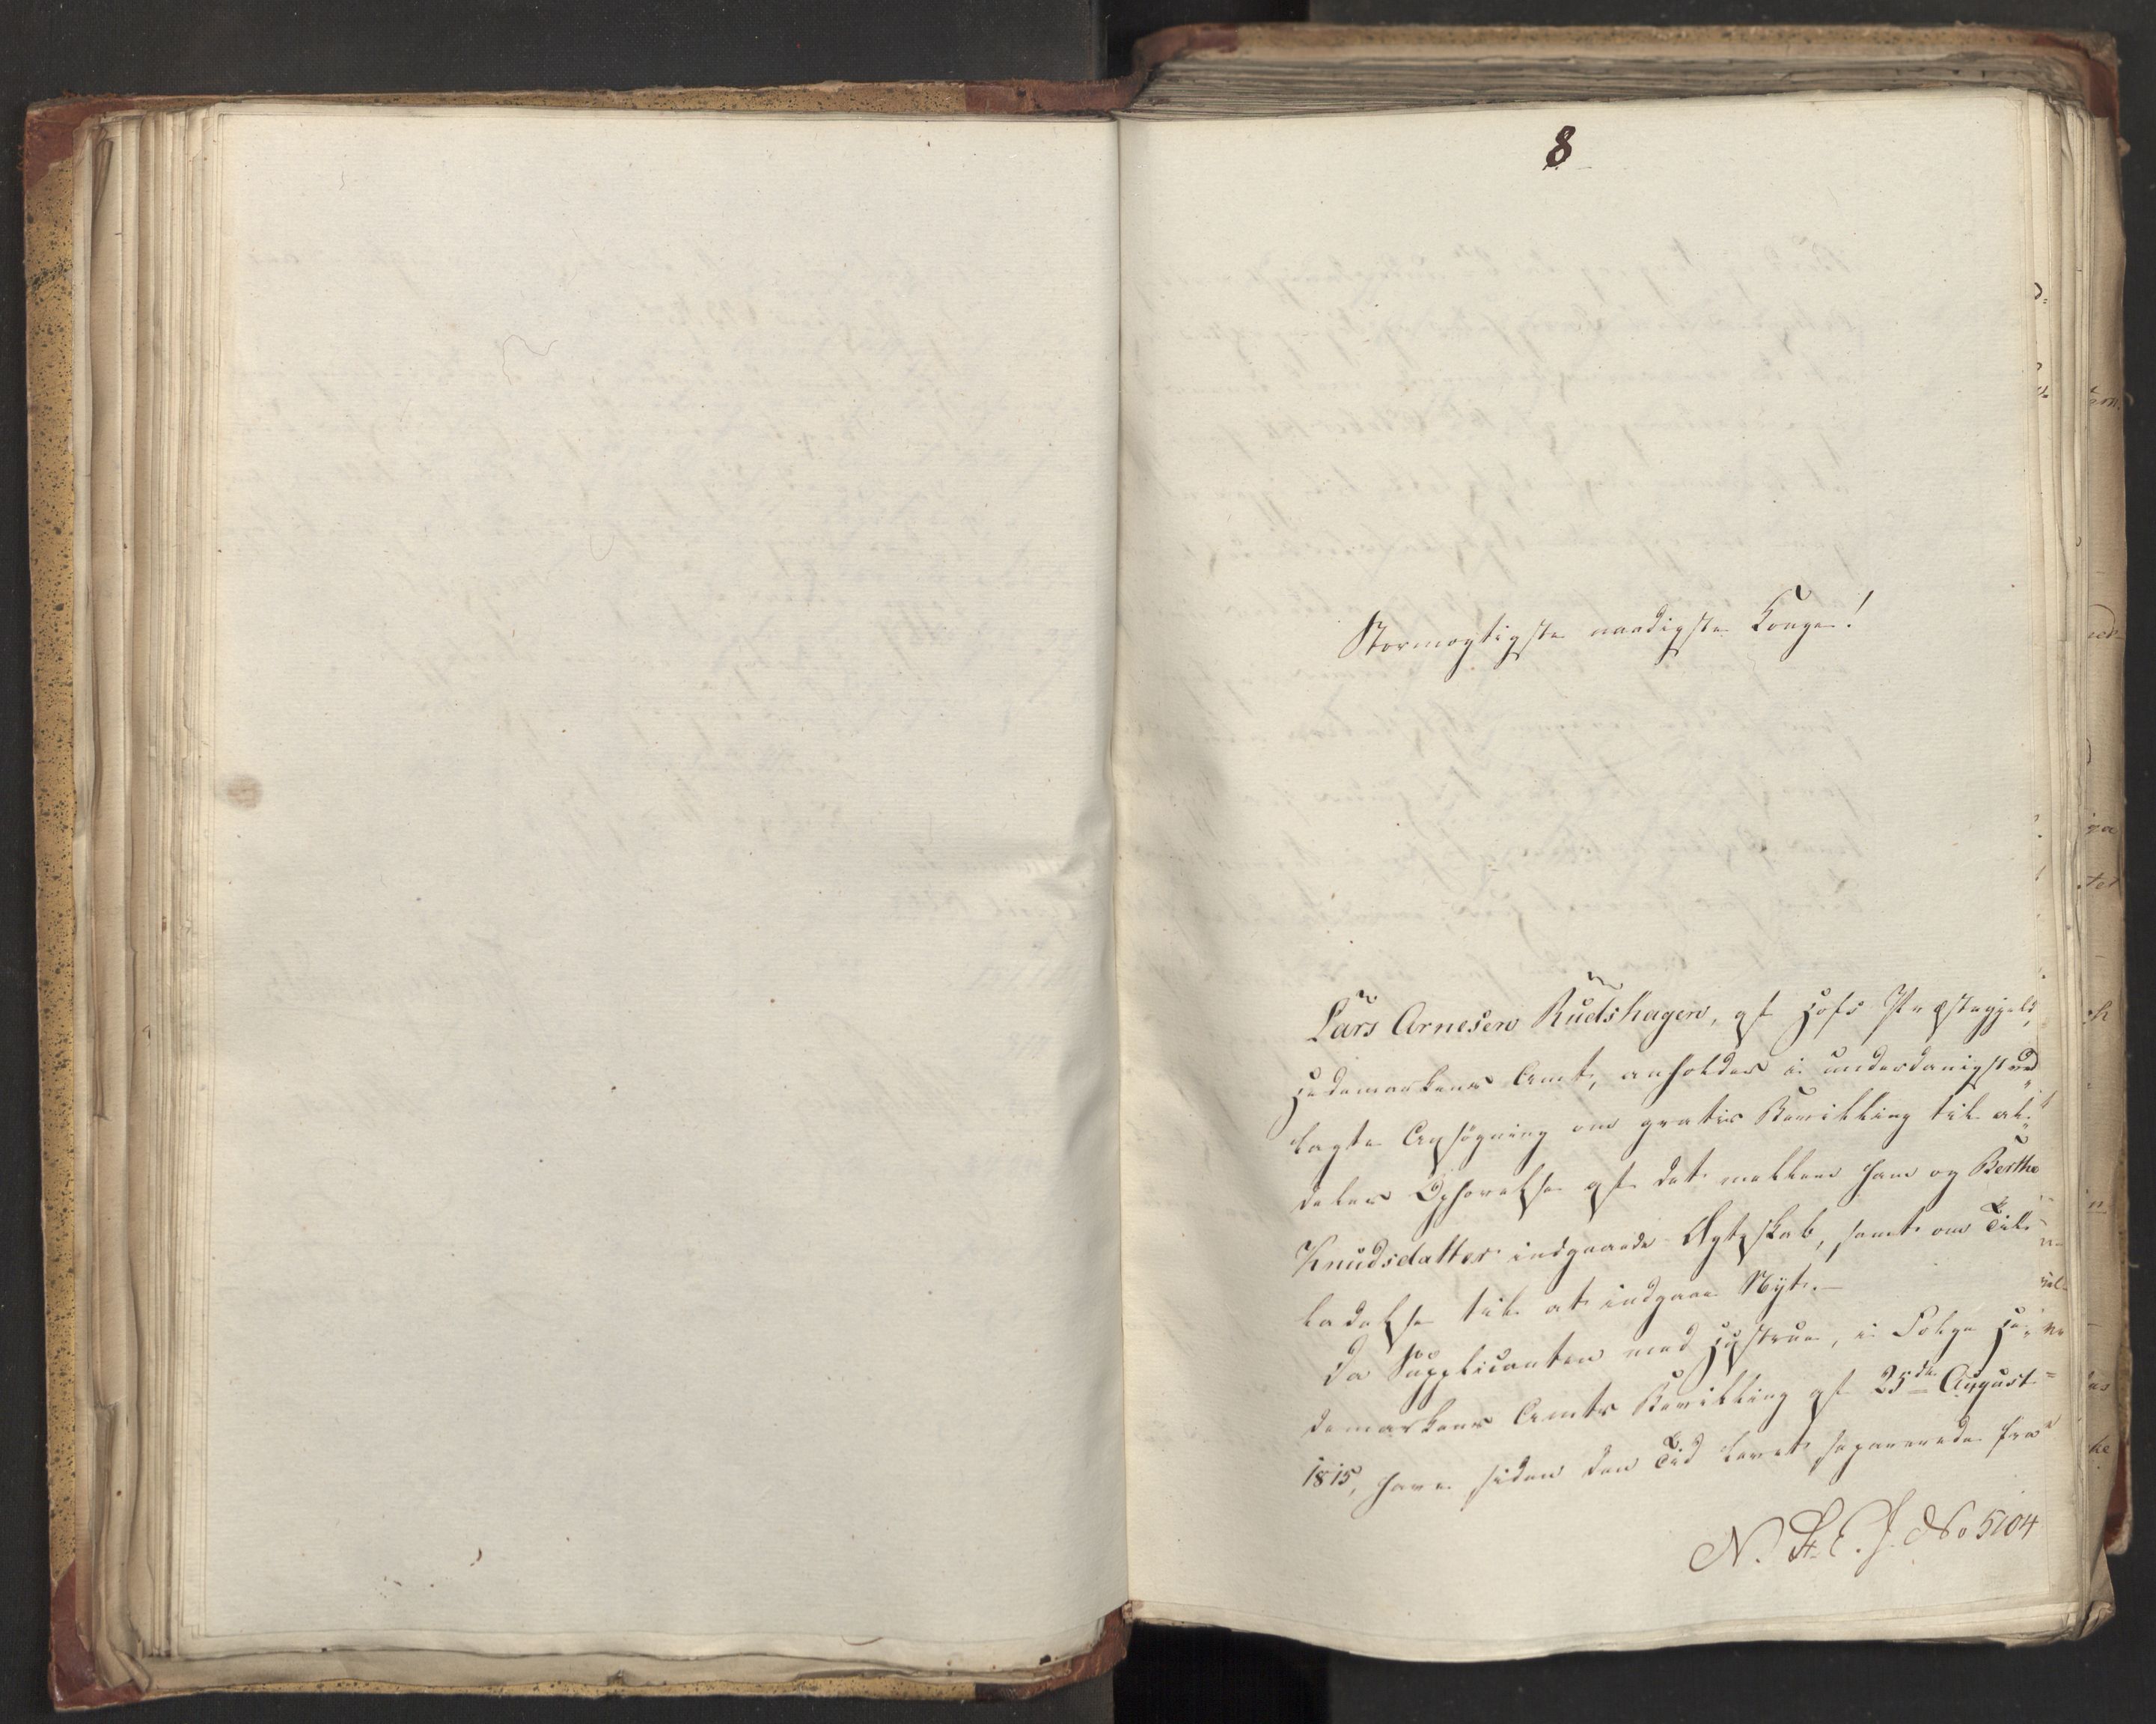 8
Stormægtigste naadigste Konge!
Lars Arnesen Rudshagen, af Hofs Præstegjeld,
Hedemarkens Amt, anholder i underdanigst ved„
lagte Ansøgning om gratis Bevilling til al„
deles Ophævelse af det mellem ham og Berthe
Knudsdatter indgaaede Ægteskab, samt om Til„
ladelse til at indgaae Nyt.—
Da Supplicanten med Hustrue, i Følge He„
demarkens Amts Bevilling af 25de August
1815, have siden den Tid levet separerede fra
N. St. E. J. No 5104